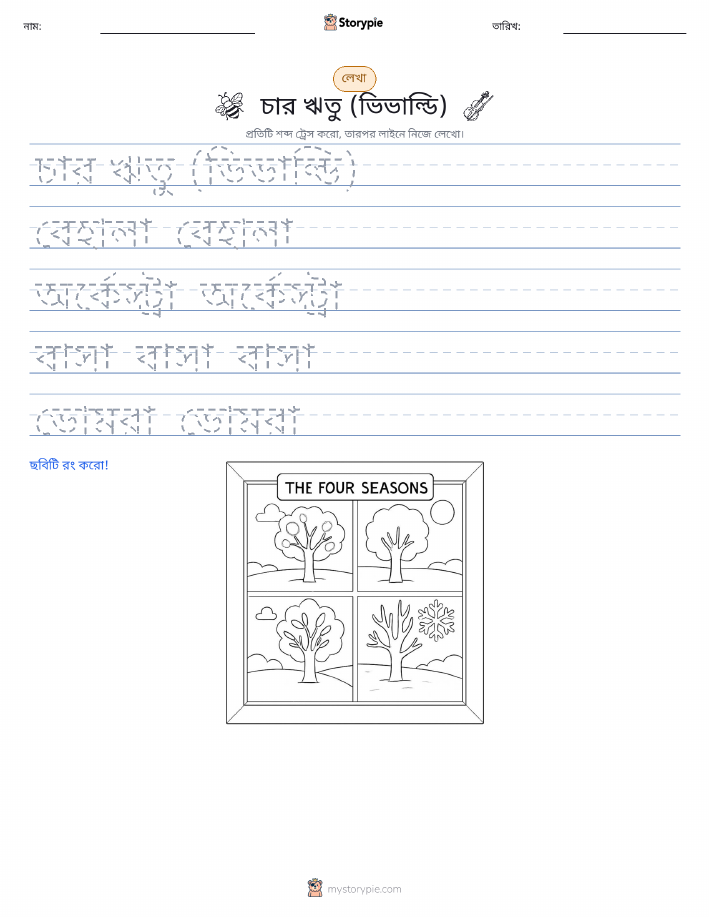 নাম:
Storypie
তারিখ:
লেখা
চার ঋতু (ভিভাল্ডি)
প্রতিটি শব্দ ট্রেস করো, তারপর লাইনে নিজে লেখো।
চার ঋতু (ভিভাল্ডি)
বেহালা বেহালা
অর্কেস্ট্রা অর্কেস্ট্রা
বাসা বাসা বাসা
ভোমরা ভোমরা
ছবিটি রং করো!
THE FOUR SEASONS
mystorypie.com